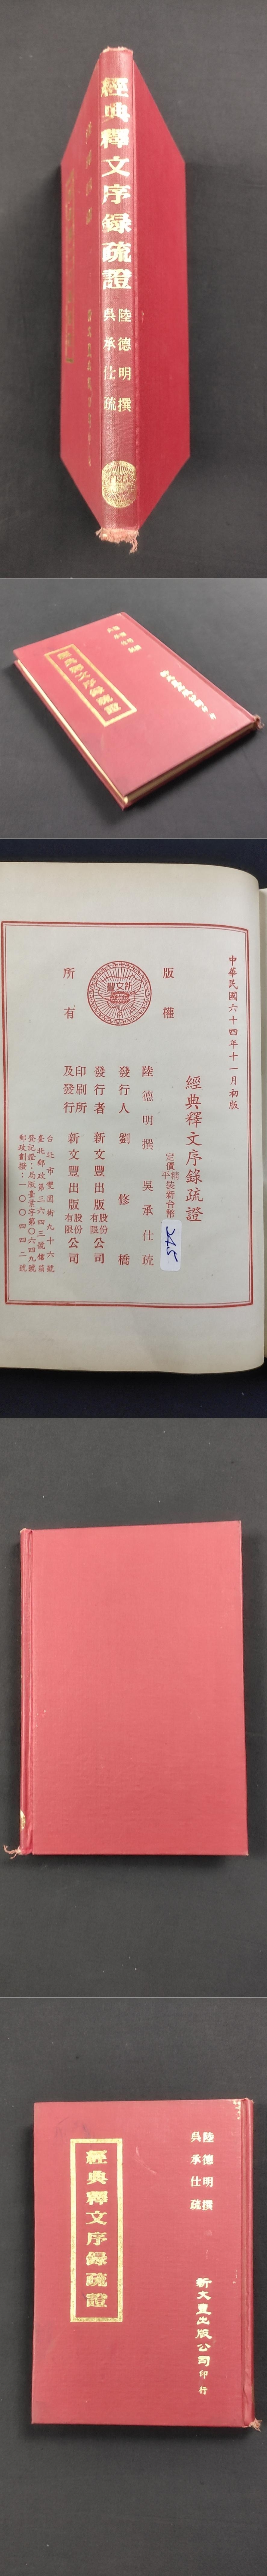 經典釋文序錄疏證
陸德明撰
吳承仕疏
經典釋文序錄疏證
中華民國六十四年十一月初版
經典釋文序錄疏證
定價
精
平
裝新台幣
版權
所有
新文豐
陸德明撰 吳承仕疏
發行人 劉修橋
發行者 新文豐出版股份有限公司
印刷所及發行 新文豐出版股份有限公司
台北市雙園街九十六號
臺北郵政第三六四三號信箱
登記證：局版臺業字第〇六四九號
郵政劃撥：一〇〇四四二號
陸德明撰
吳承仕疏
經典釋文序錄疏證
新文豐出版公司印行